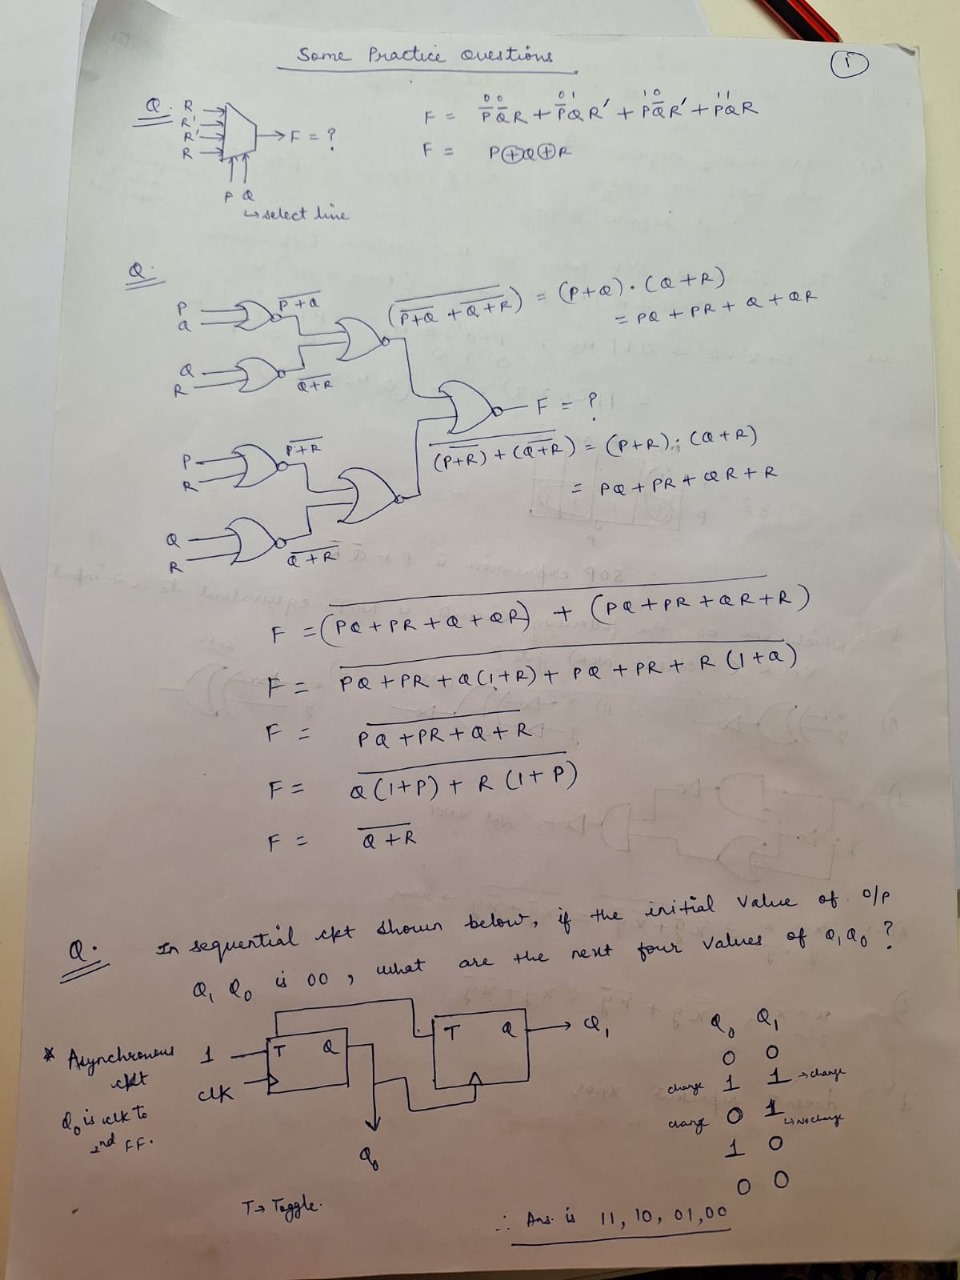 Some Practice Questions
1
Q. R
R'
R'
R
F = ?
P Q
↳ select line
00 01 10 11
F = P̅Q̅R + P̅QR' + PQ̅R' + PQR
F = P⊕Q⊕R
Q.
P
Q
\overline{P+Q}
Q
R
\overline{Q+R}
(\overline{\overline{P+Q} + \overline{Q+R}}) = (P+Q)·(Q+R)
= PQ + PR + Q + QR
F = ?
P
R
\overline{P+R}
Q
R
\overline{Q+R}
\overline{(\overline{P+R}) + (\overline{Q+R})} = (P+R)·(Q+R)
= PQ + PR + QR + R
F = \overline{(PQ+PR+Q+QR) + (PQ+PR+QR+R)}
F = \overline{PQ+PR+Q(1+R)+PQ+PR+R(1+Q)}
F = \overline{PQ+PR+Q+R}
F = \overline{Q(1+P)+R(1+P)}
F = \overline{Q+R}
Q. In sequential ckt shown below, if the initial value of o/p
Q₁ Q₀ is 00, what are the next four values of Q₁Q₀ ?
* Asynchronous
ckt
Q₀ is clk to
2nd FF.
1
clk
T Q
Q₀
T Q
Q₁
T→ Toggle.
Q₀ Q₁
0 0
change 1 1 → change
change 0 1 ↳ No change
1 0
0 0
∴ Ans. is 11, 10, 01, 00